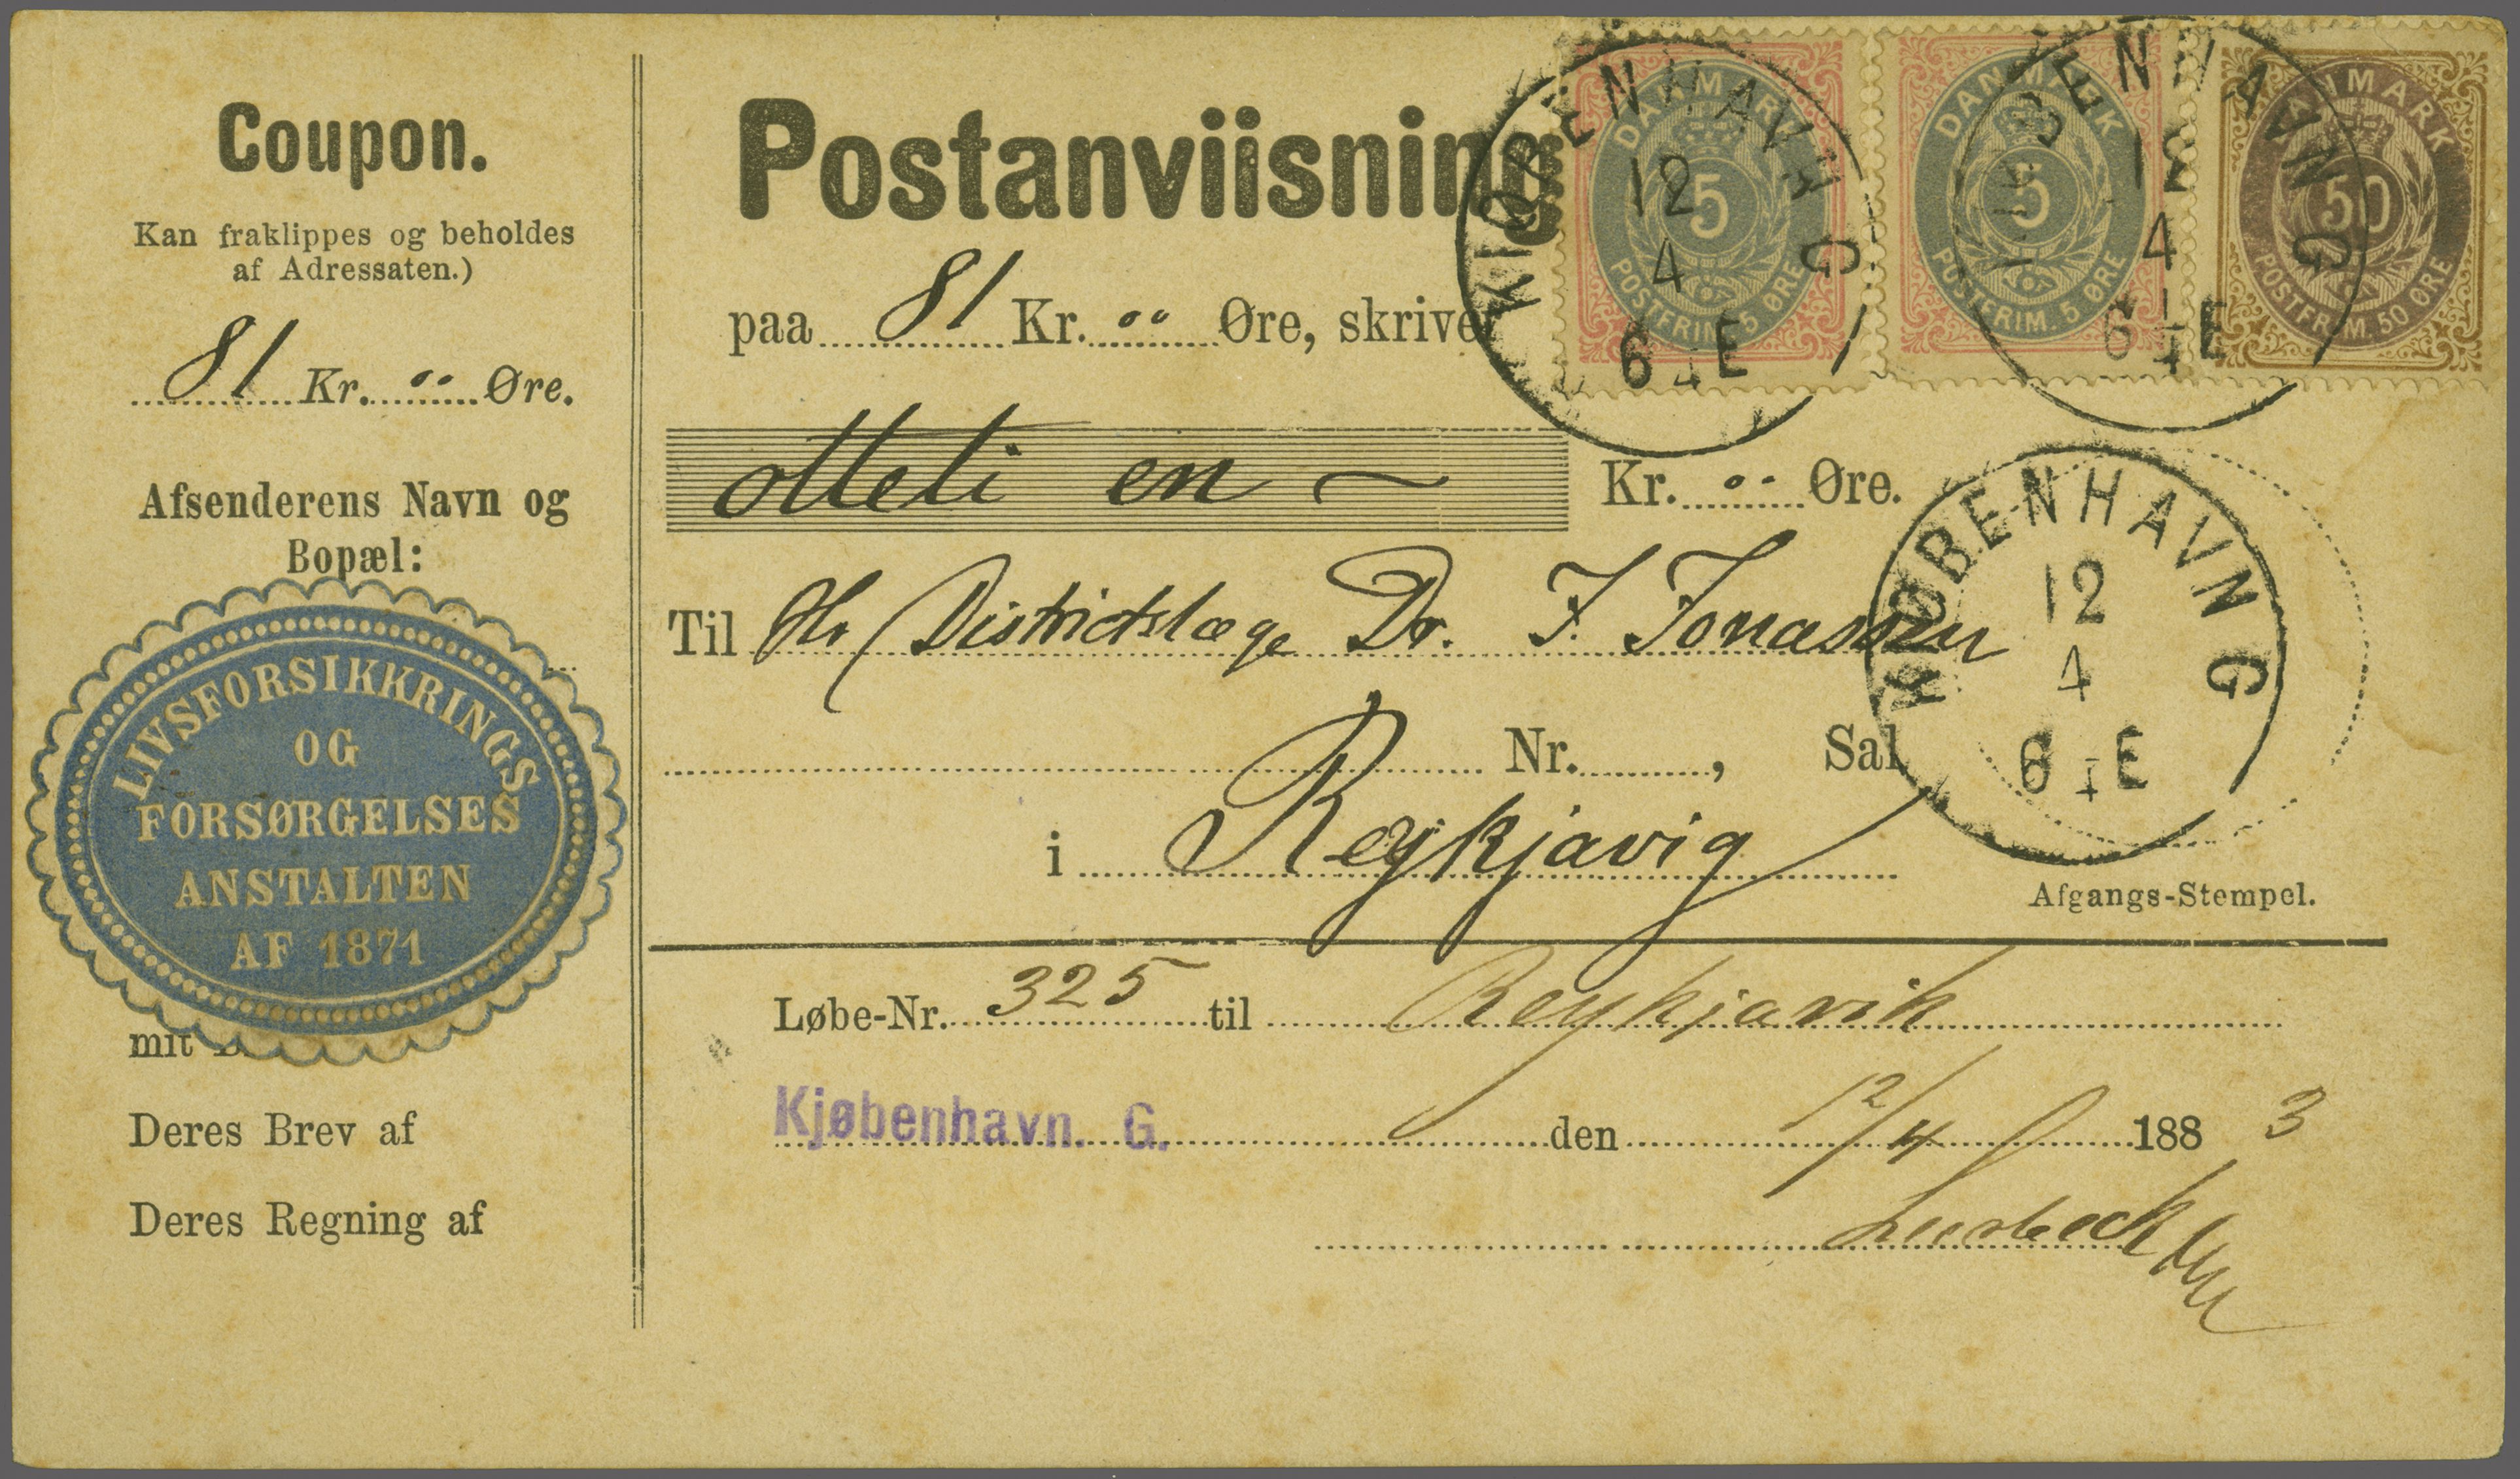 Coupon.
Kan fraklippes og beholdes
af Adressaten.)
81 Kr. .. Øre.
Afsenderens Navn og
Bopæl:
LIVSFORSIKKRINGS
OG
FORSØRGELSES
ANSTALTEN
AF 1871
mit
Deres Brev af
Deres Regning af
Postanviisning
paa 81 Kr. .. Øre, skriver
otteti en ~
Kr. .. Øre.
Til Hr Districtslæge Dr. J. Jonassen
Nr. , Sal
i Reykjavig
Afgangs-Stempel.
Løbe-Nr. 325 til Reykjavik
Kjøbenhavn. G. den 12/4 1883
DANMARK
5
POSTFRIM. 5 ØRE
DANMARK
5
POSTFRIM. 5 ØRE
DANMARK
50
POSTFRIM. 50 ØRE
KIØBENHAVN G
12
4
6 E
KIØBENHAVN G
12
4
6 E
KIØBENHAVN G
12
4
6 E